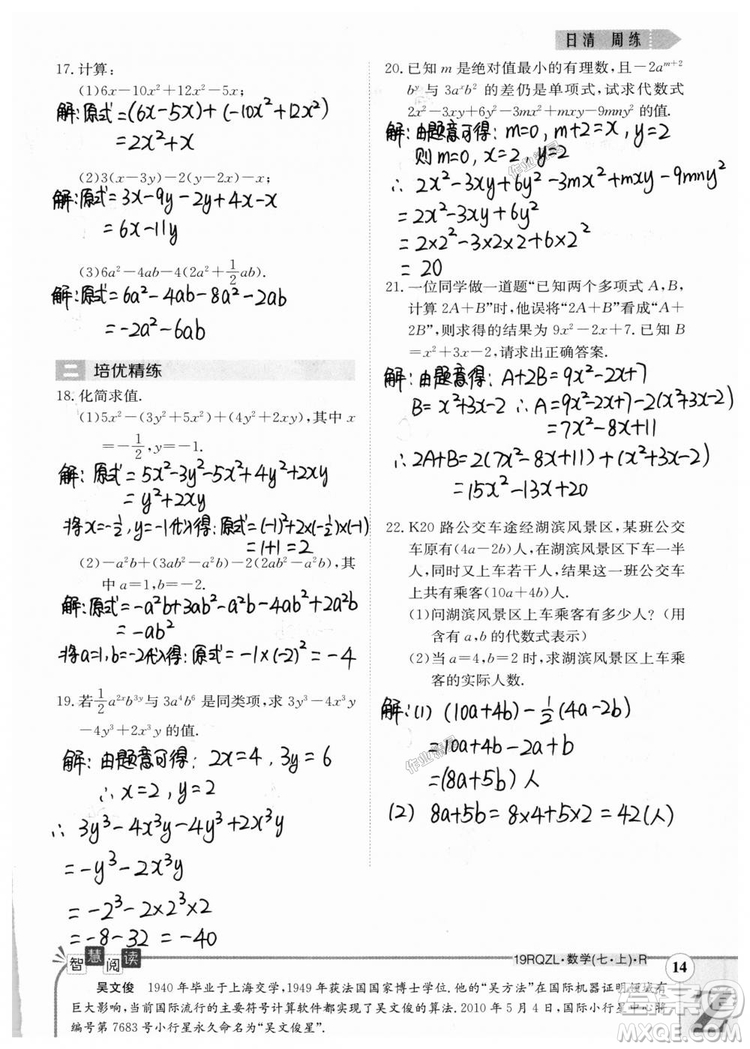 日清 周练
17. 计算：
(1)6x－10x²＋12x²－5x；
解：原式＝(6x－5x)＋(－10x²＋12x²)
＝2x²＋x
(2)3(x－3y)－2(y－2x)－x；
解：原式＝3x－9y－2y＋4x－x
＝6x－11y
(3)6a²－4ab－4(2a²＋1/2ab).
解：原式＝6a²－4ab－8a²－2ab
＝－2a²－6ab
二 培优精练
18. 化简求值.
(1)5x²－(3y²＋5x²)＋(4y²＋2xy)，其中 x
＝－1/2，y＝－1.
解：原式＝5x²－3y²－5x²＋4y²＋2xy
＝y²＋2xy
将x＝－1/2，y＝－1代入得：原式＝(－1)²＋2×(－1/2)×(－1)
＝1＋1＝2
(2)－a²b＋(3ab²－a²b)－2(2ab²－a²b)，其
中 a＝1，b＝－2.
解：原式＝－a²b＋3ab²－a²b－4ab²＋2a²b
＝－ab²
将a＝1，b＝－2代入得：原式＝－1×(－2)²＝－4
19. 若1/2a²ˣb³ʸ 与 3a⁴b⁶ 是同类项，求 3y³－4x³y
－4y³＋2x³y 的值.
解：由题意可得：2x＝4，3y＝6
∴x＝2，y＝2
∴3y³－4x³y－4y³＋2x³y
＝－y³－2x³y
＝－2³－2×2³×2
＝－8－32＝－40
20. 已知 m 是绝对值最小的有理数，且－2aᵐ⁺²
bʸ 与 3aˣb² 的差仍是单项式，试求代数式
2x²－3xy＋6y²－3mx²＋mxy－9my² 的值.
解：由题意可得：m＝0，m＋2＝x，y＝2
则m＝0，x＝2，y＝2
∴2x²－3xy＋6y²－3mx²＋mxy－9my²
＝2x²－3xy＋6y²
＝2×2²－3×2×2＋6×2²
＝20
21. 一位同学做一道题“已知两个多项式 A，B，
计算 2A＋B”时，他误将“2A＋B”看成“A＋
2B”，则求得的结果为 9x²－2x＋7. 已知 B
＝x²＋3x－2，请求出正确答案.
解：由题意得：A＋2B＝9x²－2x＋7
B＝x²＋3x－2 ∴A＝9x²－2x＋7－2(x²＋3x－2)
＝7x²－8x＋11
∴2A＋B＝2(7x²－8x＋11)＋(x²＋3x－2)
＝15x²－13x＋20
22. K20 路公交车途经湖滨风景区，某班公交
车原有(4a－2b)人，在湖滨风景区下车一半
人，同时又上车若干人，这时这一班公交车
上共有乘客(10a＋4b)人.
(1)问湖滨风景区上车乘客有多少人？(用
含有 a，b 的代数式表示)
(2)当 a＝4，b＝2 时，求湖滨风景区上车乘
客的实际人数.
解：(1) (10a＋4b)－1/2(4a－2b)
＝10a＋4b－2a＋b
＝(8a＋5b)人
(2) 8a＋5b＝8×4＋5×2＝42(人)
19RQZL·数学(七·上)·R 14
智慧阅读
吴文俊 1940 年毕业于上海交学，1949 年获法国国家博士学位. 他的“吴方法”在国际机器证明领域有
巨大影响，当前国际流行的主要符号计算软件都实现了吴文俊的算法. 2010 年 5 月 4 日，国际小行星中心将
编号第 7683 号小行星永久命名为“吴文俊星”.
MXQE.COM